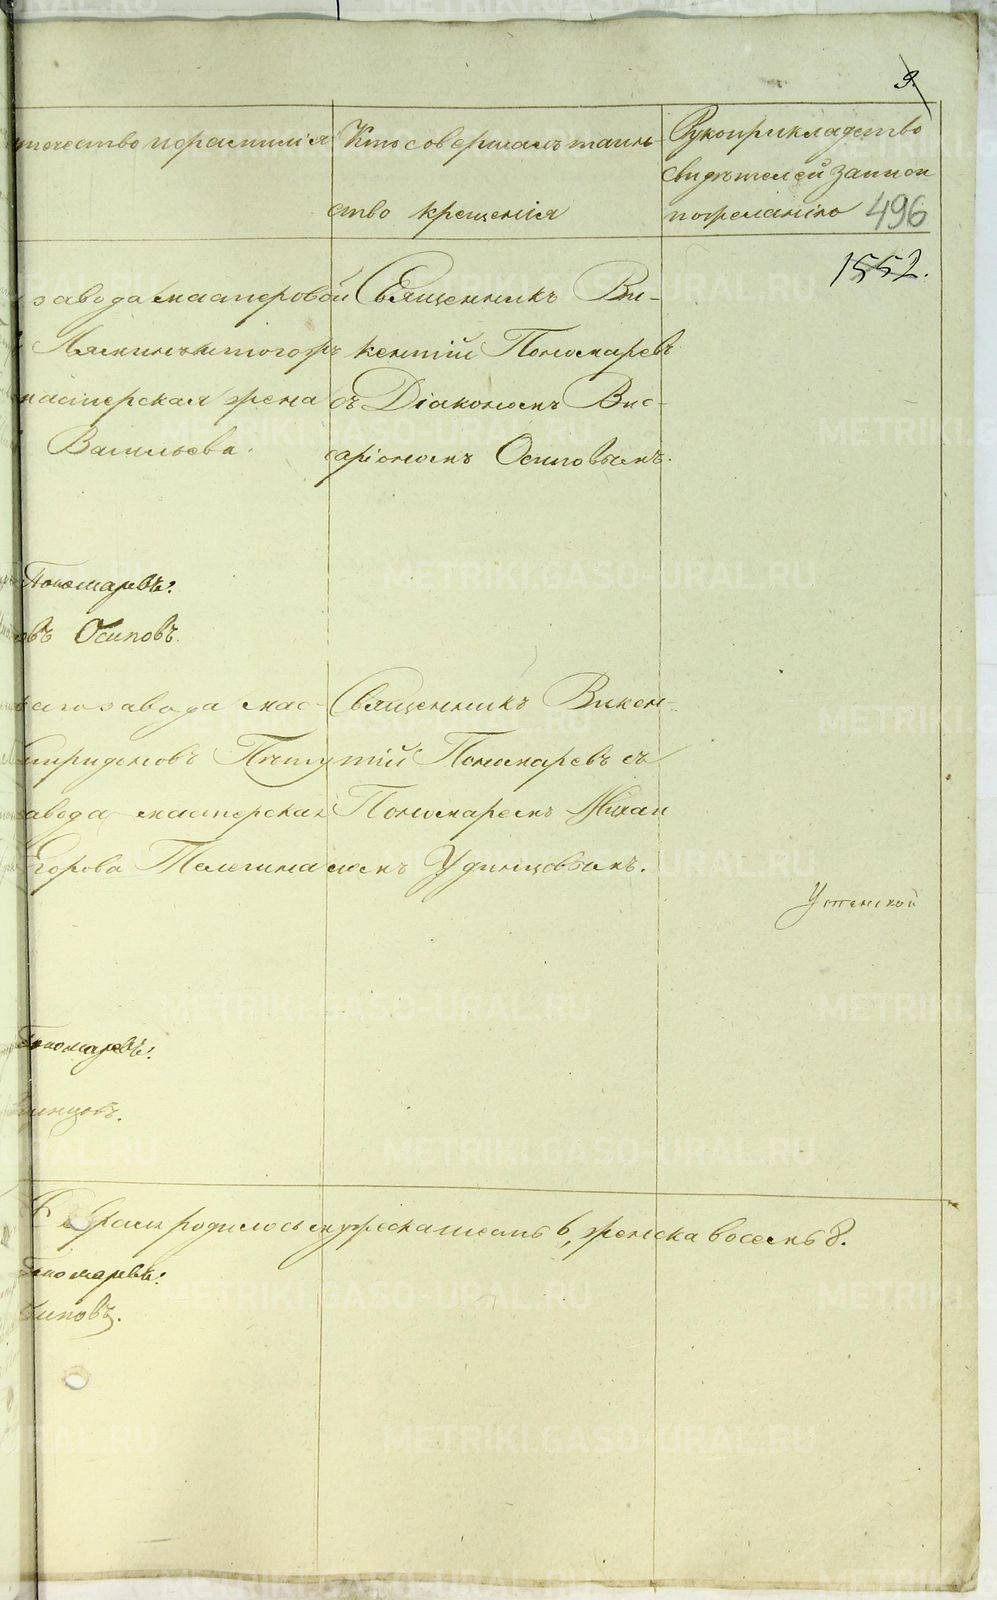 9.
отечество и фамилія
Кто совершалъ таин-
ство крещенія
Рукоприкладство
свидѣтелей записи
по желанію
496
1552.
завода мастеровой
мастерская жена
Васильева.
Священникъ Ви-
кентій Пономаревъ
съ Діакономъ Вис-
саріономъ Осиповымъ.
Пономаревъ.
Осиповъ.
завода мас-
завода мастерская
Егорова Телегина
Священникъ Викен-
тій Пономаревъ съ
Пономаремъ Михаи
ломъ Удинцовымъ.
Успенской
Пономаревъ.
родилось мужеска шесть 6, женска восемь 8.
Пономаревъ.
METRIKI.GASO-URAL.RU